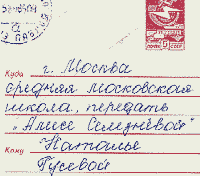 Куда г. Москва
средняя московская
школа, передать
"Алисе Селезнёвой"
Кому Наталье
Гусевой
ПОЧТА 5 СССР